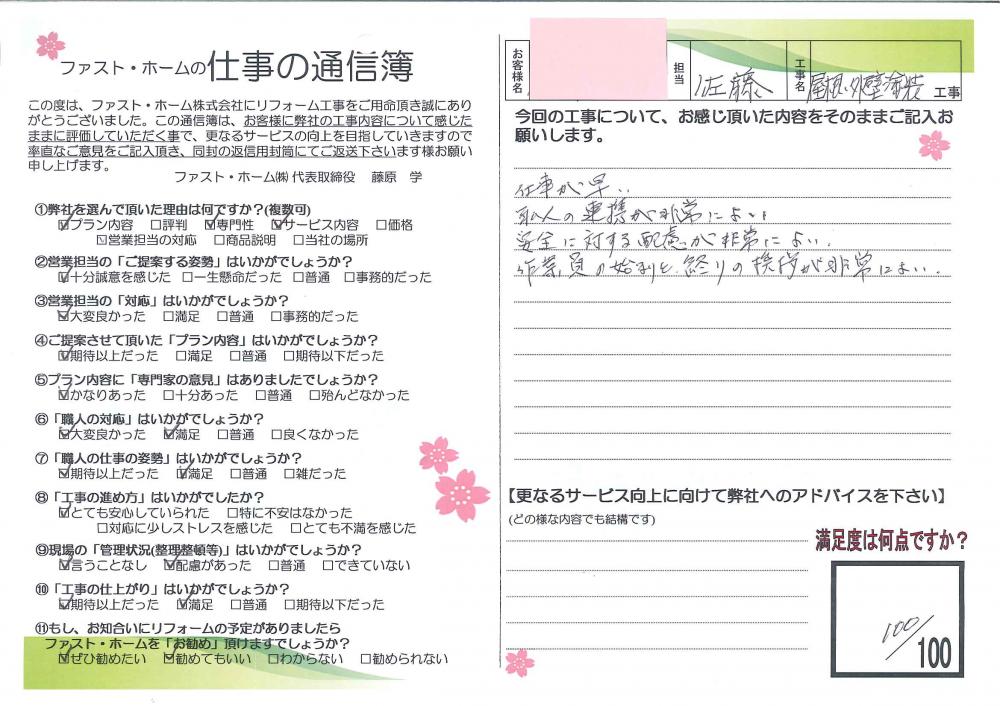 ファスト・ホームの仕事の通信簿
この度は、ファスト・ホーム株式会社にリフォーム工事をご用命頂き誠にあり
がとうございました。この通信簿は、お客様に弊社の工事内容について感じた
ままに評価していただく事で、更なるサービスの向上を目指していきますので
率直なご意見をご記入頂き、同封の返信用封筒にてご返送下さいます様お願い
申し上げます。
ファスト・ホーム㈱ 代表取締役 藤原 学
①弊社を選んで頂いた理由は何ですか?(複数可)
☑プラン内容 □評判 ☑専門性 ☑サービス内容 □価格
☑営業担当の対応 □商品説明 □当社の場所
②営業担当の「ご提案する姿勢」はいかがでしょうか?
☑十分誠意を感じた □一生懸命だった □普通 □事務的だった
③営業担当の「対応」はいかがでしょうか?
☑大変良かった □満足 □普通 □事務的だった
④ご提案させて頂いた「プラン内容」はいかがでしょうか?
☑期待以上だった □満足 □普通 □期待以下だった
⑤プラン内容に「専門家の意見」はありましたでしょうか?
☑かなりあった □十分あった □普通 □殆んどなかった
⑥「職人の対応」はいかがでしょうか?
☑大変良かった ☑満足 □普通 □良くなかった
⑦「職人の仕事の姿勢」はいかがでしょうか?
☑期待以上だった ☑満足 □普通 □雑だった
⑧「工事の進め方」はいかがでしたか?
☑とても安心していられた □特に不安はなかった
□対応に少しストレスを感じた □とても不満を感じた
⑨現場の「管理状況(整理整頓等)」はいかがでしょうか?
☑言うことなし ☑配慮があった □普通 □できていない
⑩「工事の仕上がり」はいかがでしょうか?
☑期待以上だった ☑満足 □普通 □期待以下だった
⑪もし、お知合いにリフォームの予定がありましたら
ファスト・ホームを「お勧め」頂けますでしょうか?
☑ぜひ勧めたい ☑勧めてもいい □わからない □勧められない
お客様名
担当 佐藤
工事名 屋根、外壁塗装 工事
今回の工事について、お感じ頂いた内容をそのままご記入お
願いします。
仕事が早い
職人の連携が非常によい
安全に対する配慮が非常によい.
作業員の始りと終りの挨拶が非常によい.
【更なるサービス向上に向けて弊社へのアドバイスを下さい】
(どの様な内容でも結構です)
満足度は何点ですか?
100/100